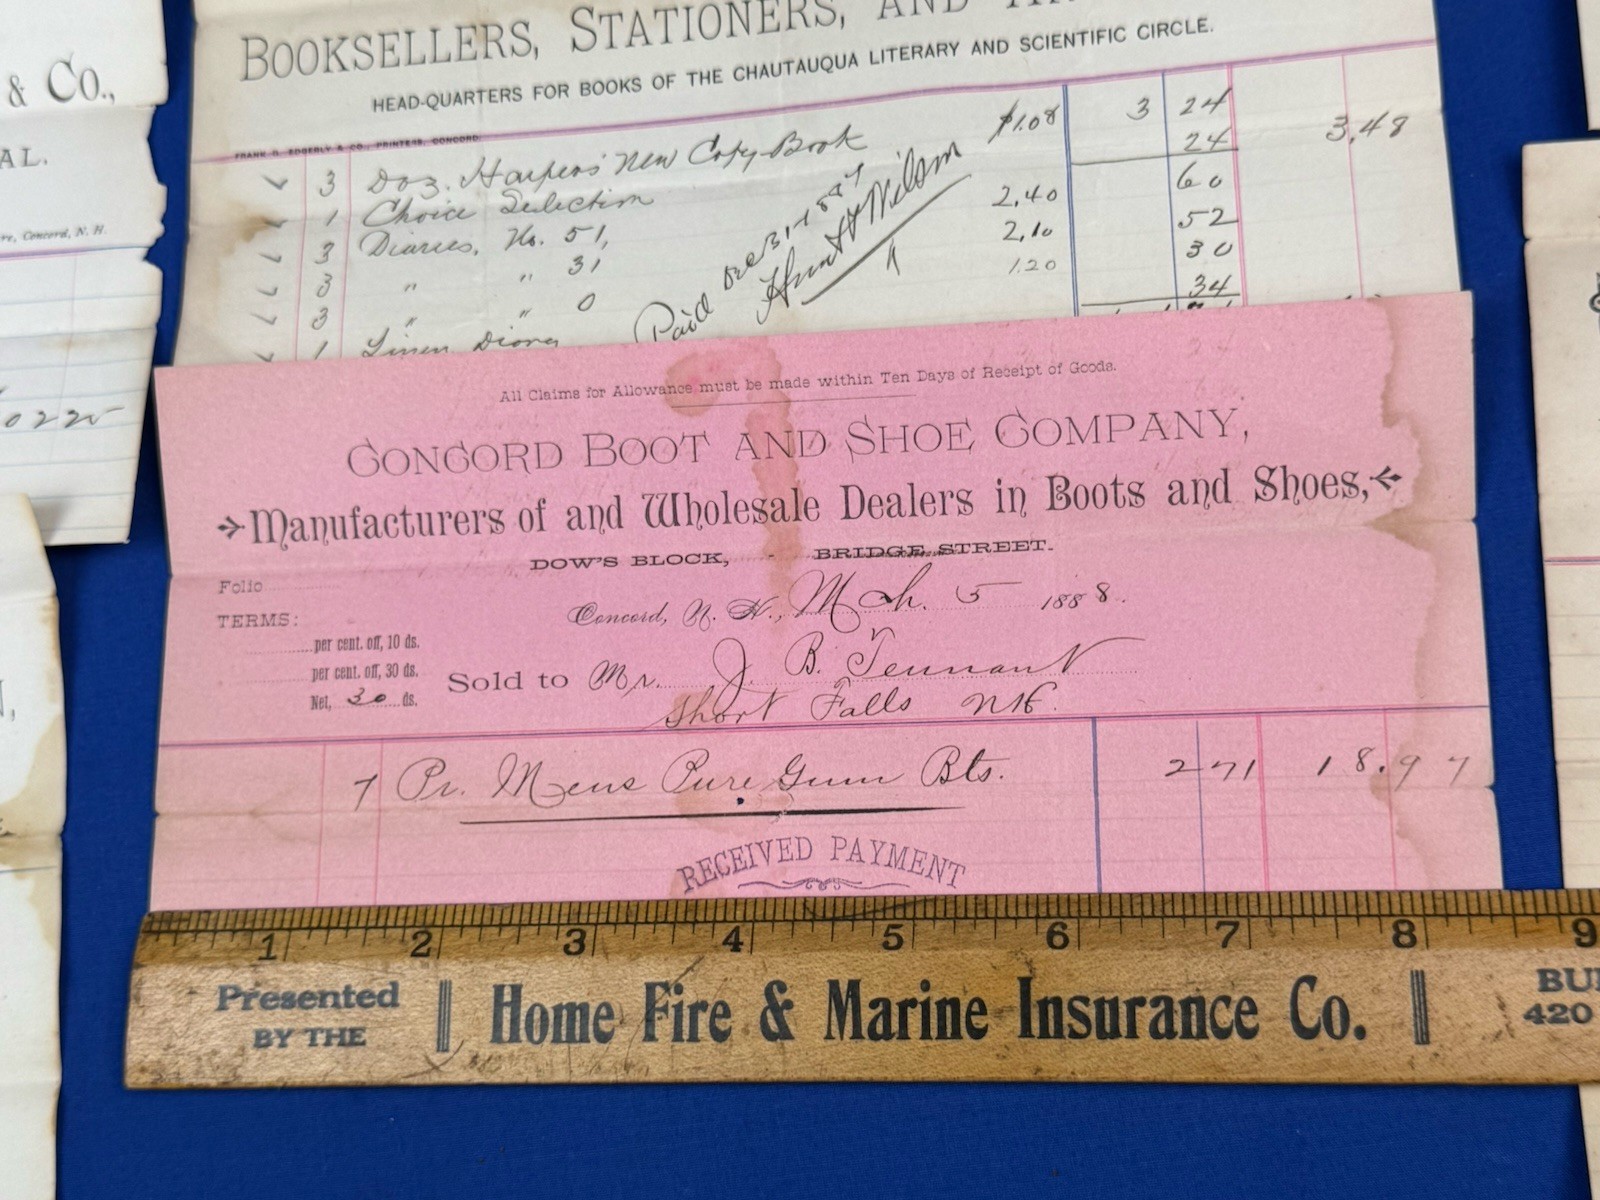 & Co.,
AL.
Concord, N. H.
BOOKSELLERS, STATIONERS, AND
HEAD-QUARTERS FOR BOOKS OF THE CHAUTAUQUA LITERARY AND SCIENTIFIC CIRCLE.
FRANK G. EDGERLY & CO., PRINTERS, CONCORD.
3 Doz. Harpers' New Copy-Book $1.08 3 24
1 Choice Selection 24 3,48
3 Diaries, No. 51, 2,40 60
3 " " 31 2,10 52
3 " " 0 1.20 30
1 Linen Diary 34
Paid
Hunt & Wilson
All Claims for Allowance must be made within Ten Days of Receipt of Goods.
CONCORD BOOT AND SHOE COMPANY,
Manufacturers of and Wholesale Dealers in Boots and Shoes,
DOW'S BLOCK, - BRIDGE STREET.
Folio
Concord, N. H., Mch. 5 1888.
TERMS:
per cent. off, 10 ds.
per cent. off, 30 ds.
Net, 30 ds.
Sold to Mr. J. B. Tennant
Short Falls NH.
7 Pr. Mens Pure Gum Bts. 2 71 18.97
RECEIVED PAYMENT
1 2 3 4 5 6 7 8 9
Presented
BY THE
Home Fire & Marine Insurance Co.
420